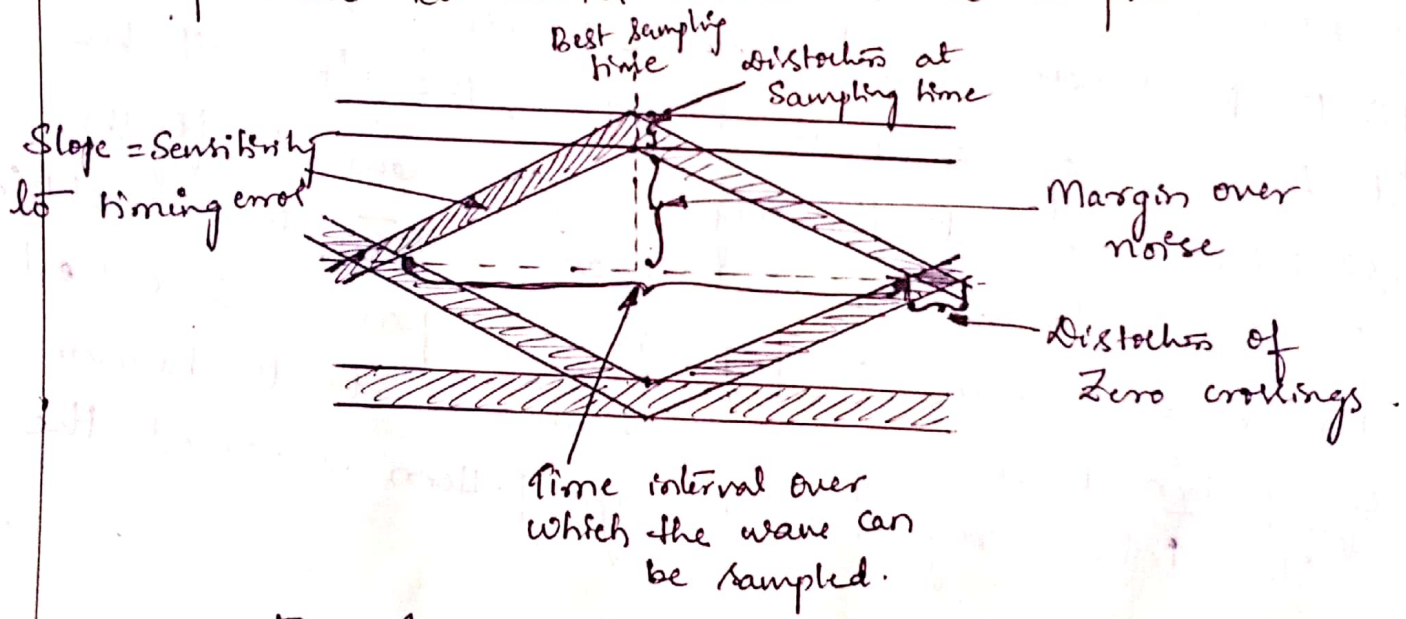 Best Sampling
time
Distortion at
Sampling time
Slope = Sensitivity
to timing error
Margin over
noise
Distortion of
Zero crossings.
Time interval over
which the wave can
be sampled.